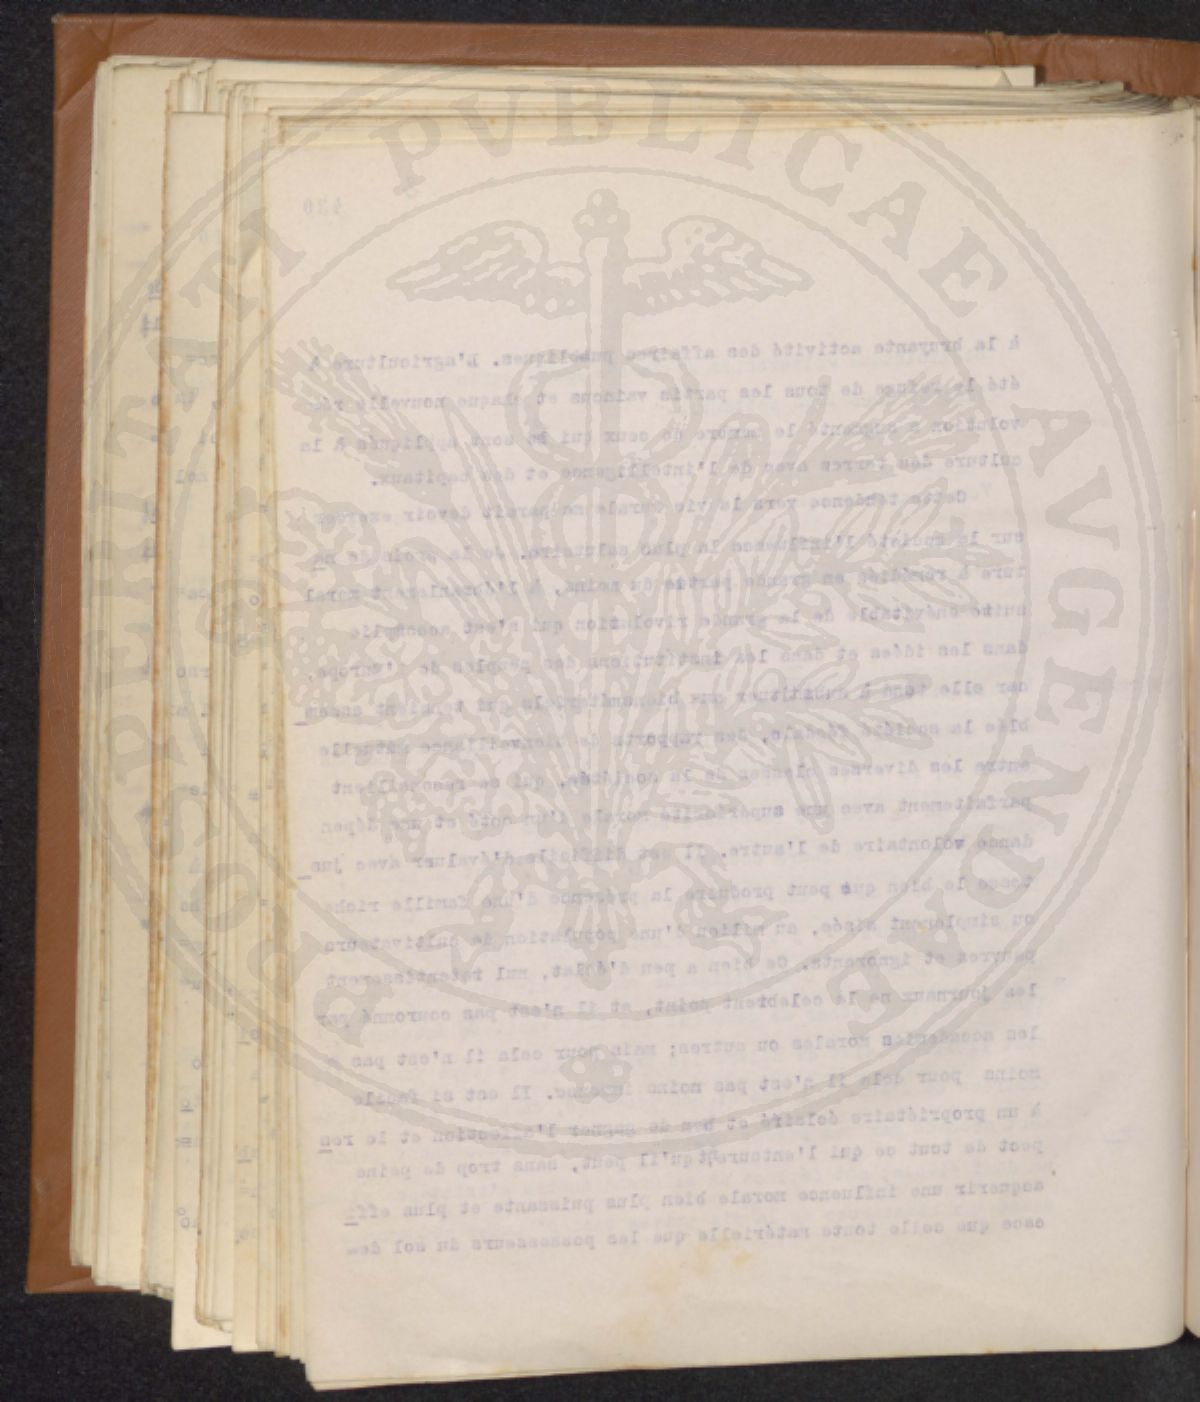 POSTERITATI PVBLICAE AVGENDAE
430
à la bruyante activité des affaires publiques. L'agriculture à
été le refuge de tous les partis vaincus et chaque nouvelle rév
volution a augmenté le nombre de ceux qui se sont appliqués à la
culture des terres avec de l'intelligence et des capitaux.
Cette tendence vers la vie rurale me parait devoir exercer
sur la société l'influence la plus salutaire.
ture à remédier en grande partie du moins, à l'ébranlement moral
suite énévitable de la grande rivolution qui s'est accomplie
dans les idées et dans les institutions des peuples de l'Europe,
car elle tend à substituer aux liens matériels qui tenaient assem
blée la société féodale, des rapports de bienveillance mutuelle
entre les diverses classes de la société, qui se
parfaitement avec une supériorité morale d'un coté et une dépen
dance volontaire de l'autre. Il est difficile d'évaluer avec jus
tesse le bien que peut produire la présence d'une famille riche
ou simplement aisée, au milieu d'une population de cultivateurs
pauvres et ignorants. Ce bien a peu d'éclat, nul retentissement
les journaux ne le celebrent point, et il n'est pas couronné par
les académies morales ou autres; mais pour cela il n'est pas
moins pour cela il n'est pas moins immense. Il est si facile
à un propriétaire éclairé et bon de gagner l'affection et le res
pect de tout ce qui l'entoure, qu'il peut, sans trop de peine
acquerir une influence morale bien plus puissante et plus effi
cace que celle toute matérielle que les possesseurs du sol des